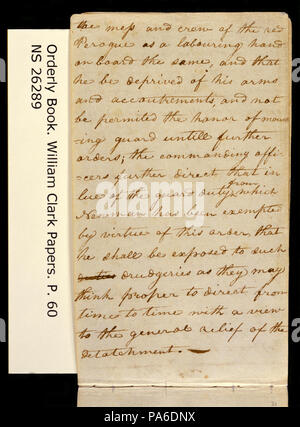 Orderly Book. William Clark Papers. P. 60
NS 26289
the mess and crew of the red
Peroque as a labouring hand
on board the same, and that
he be deprived of his arms
and accoutrements, and not
be permited the honor of moun
ing guard untill further
orders; the commanding offi-
cers further direct that in
lue of the guard duty from which
Newman has been exempted
by virtue of this order, that
he shall be exposed to such
drudgeries as they may
think proper to direct from
time to time with a view
to the general relief of the
detatchment. —
a
alamy
PA6DNX